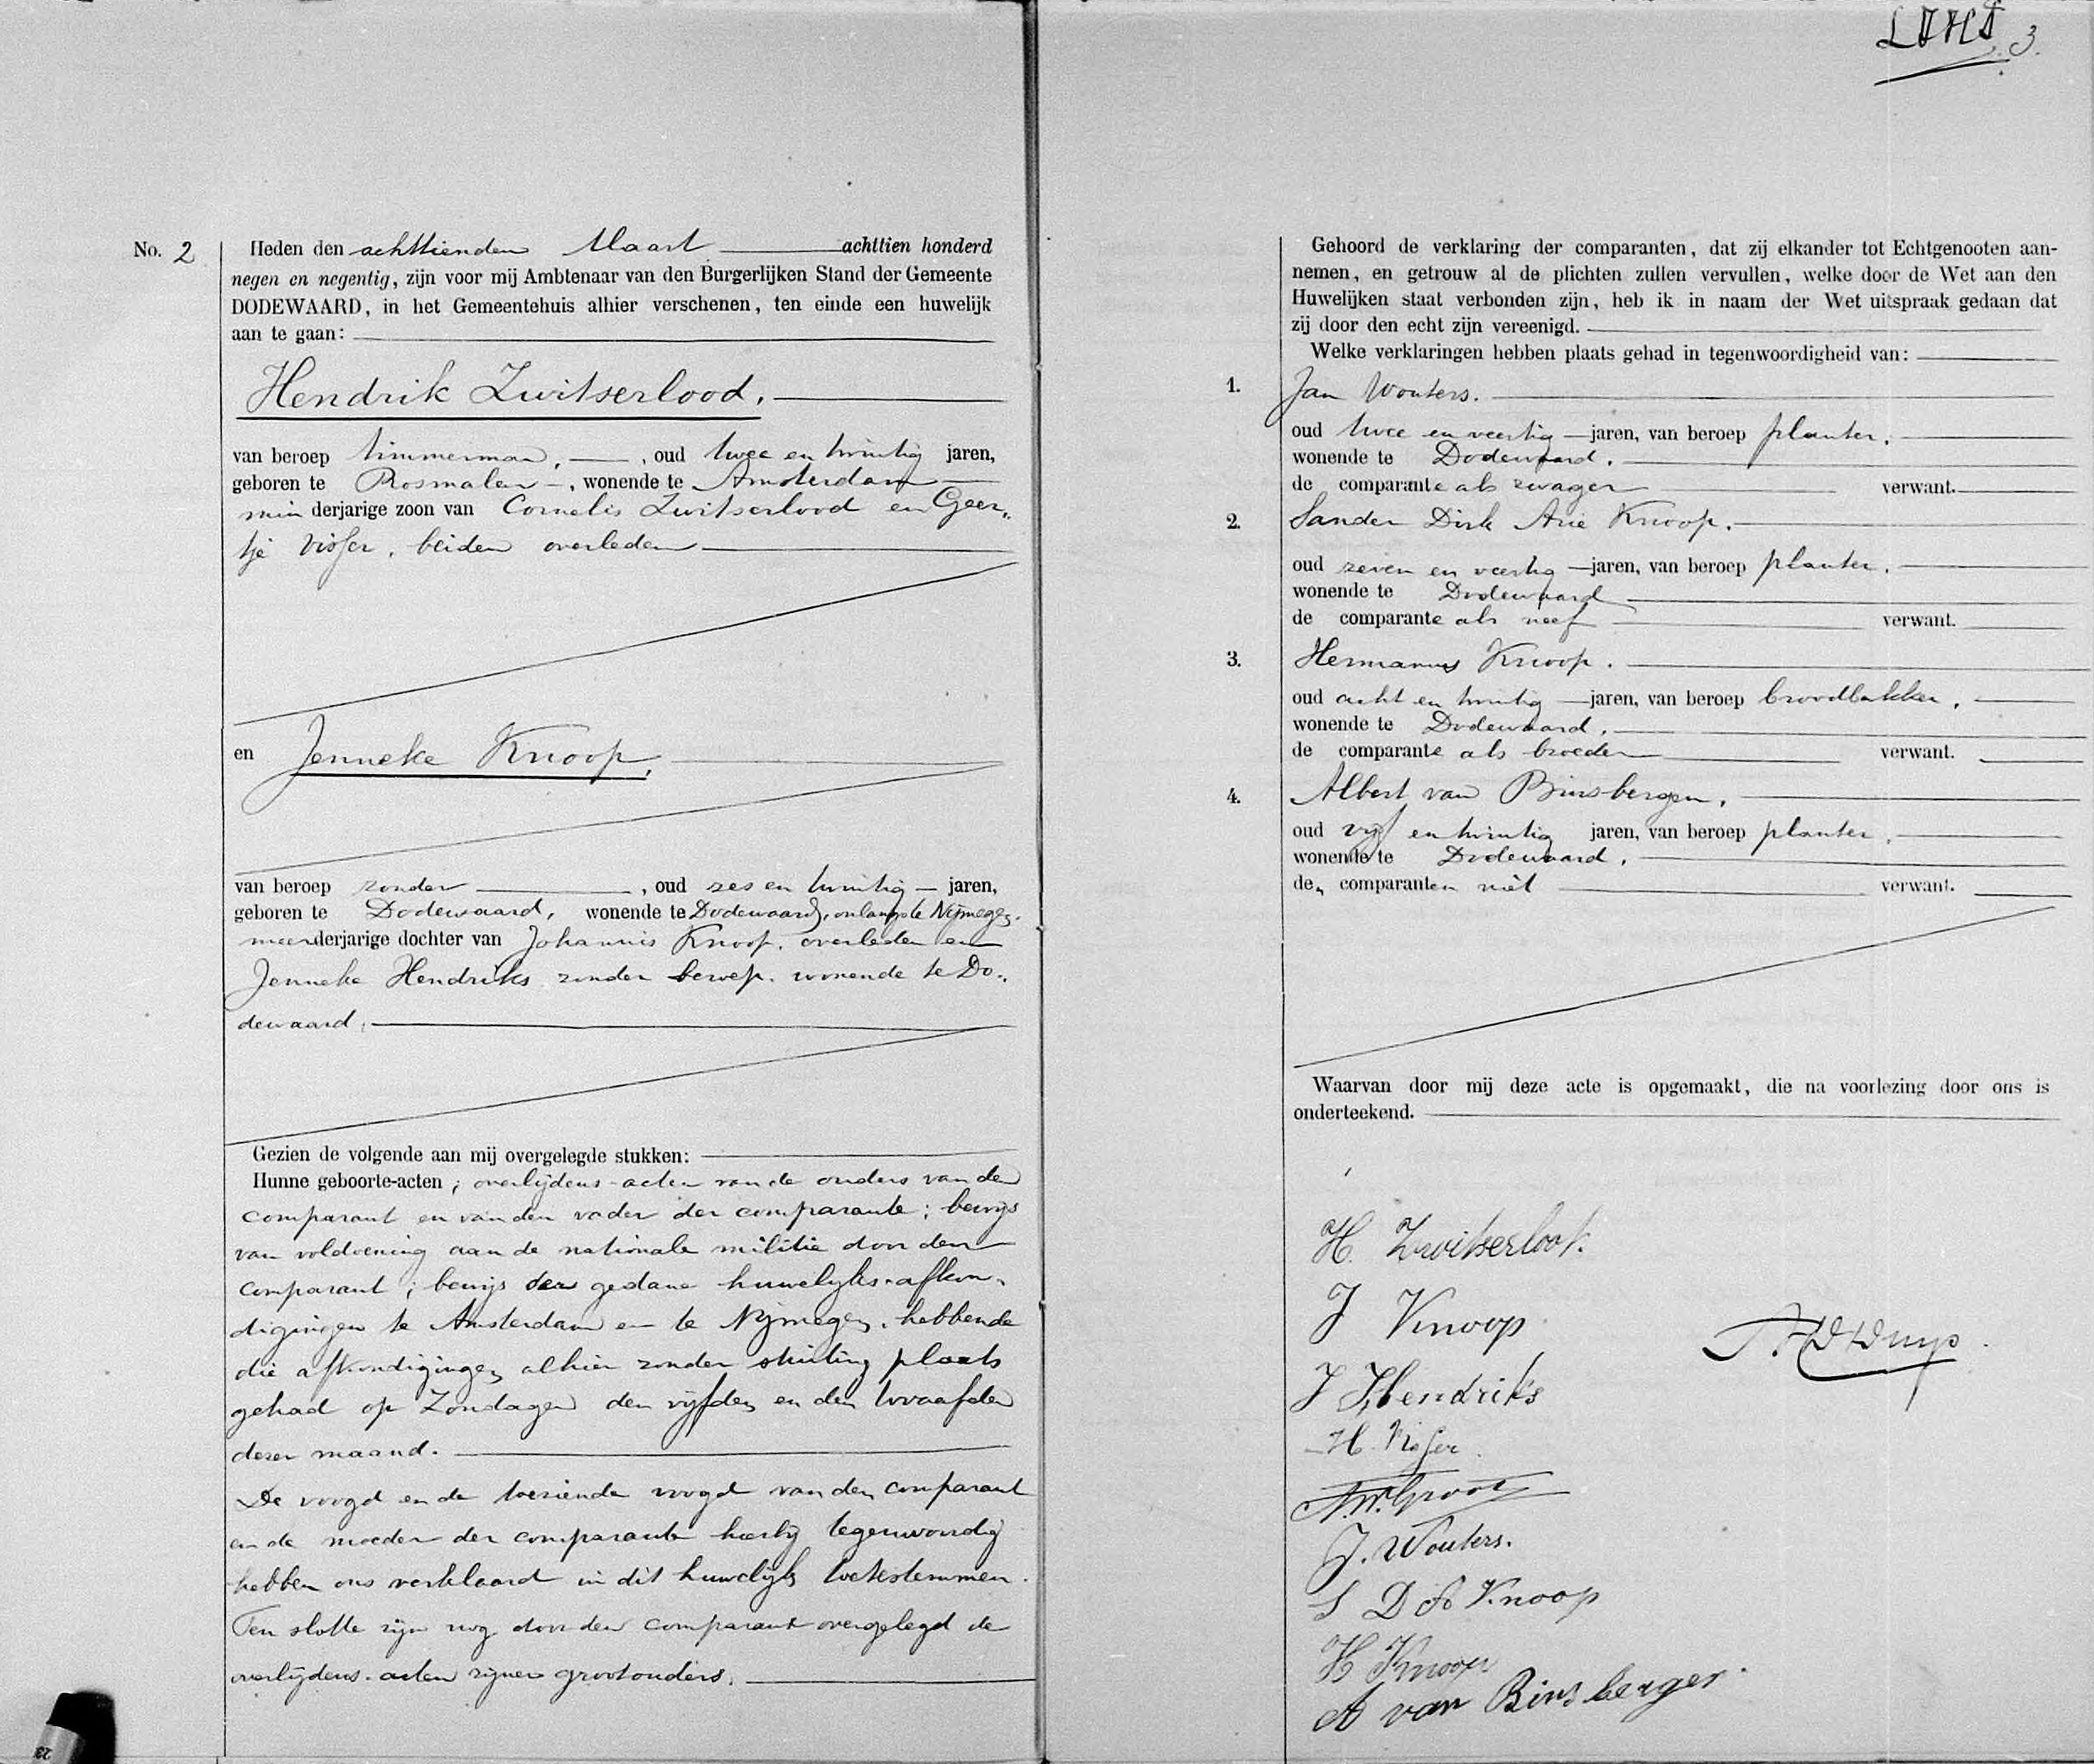 No. 2
Heden den achttienden Maart achttien honderd
negen en negentig, zijn voor mij Ambtenaar van den Burgerlijken Stand der Gemeente
DODEWAARD, in het Gemeentehuis alhier verschenen, ten einde een huwelijk
aan te gaan:
Hendrik Zwitserlood.
van beroep timmerman, , oud twee en twintig jaren,
geboren te Rosmalen , wonende te Amsterdam
minderjarige zoon van Cornelis Zwitserlood en Geer„
tje Visser, beiden overleden
en Jenneke Knoop,
van beroep zonder , oud zes en twintig jaren,
geboren te Dodewaard, wonende te Dodewaard, onlangs te Nijmegen.
meerderjarige dochter van Johannis Knoop, overleden en
Jenneke Hendriks zonder beroep, wonende te Do„
dewaard,
Gezien de volgende aan mij overgelegde stukken:
Hunne geboorte-acten ; overlijdens-acten van de ouders van den
comparant en van den vader der comparante ; bewijs
van voldoening aan de nationale militie door den
comparant ; bewijs der gedane huwelijks-afkon„
digingen te Amsterdam en te Nijmegen, hebbende
die afkondigingen alhier zonder stuiting plaats
gehad op Zondagen den vijfden en den twaalfden
dezer maand.
De voogd en de toeziende voogd van den comparant
en de moeder der comparante hierbij tegenwoordig
hebben ons verklaard in dit huwelijk toetestemmen.
Ten slotte zijn nog door den comparant overgelegd de
overlijdens-acten zijner grootouders.
3.
Gehoord de verklaring der comparanten, dat zij elkander tot Echtgenooten aan-
nemen, en getrouw al de plichten zullen vervullen, welke door de Wet aan den
Huwelijken staat verbonden zijn, heb ik in naam der Wet uitspraak gedaan dat
zij door den echt zijn vereenigd.
Welke verklaringen hebben plaats gehad in tegenwoordigheid van:
1. Jan Wouters.
oud twee en veertig jaren, van beroep planter,
wonende te Dodewaard.
de comparante als zwager verwant.
2. Sander Dirk Arie Knoop.
oud zeven en veertig jaren, van beroep planter.
wonende te Dodewaard
de comparante als neef verwant.
3. Hermanus Knoop.
oud acht en twintig jaren, van beroep broodbakker,
wonende te Dodewaard.
de comparante als broeder verwant.
4. Albert van Binsbergen,
oud vijf en twintig jaren, van beroep planter,
wonende te Dodewaard,
den comparanten niet verwant.
Waarvan door mij deze acte is opgemaakt, die na voorlezing door ons is
onderteekend.
H. Zwitserloot.
J Knoop
J Hendriks
H. Visser
A.W. Groot
J. Wouters.
S D A Knoop
H Knoop
A van Binsbergen